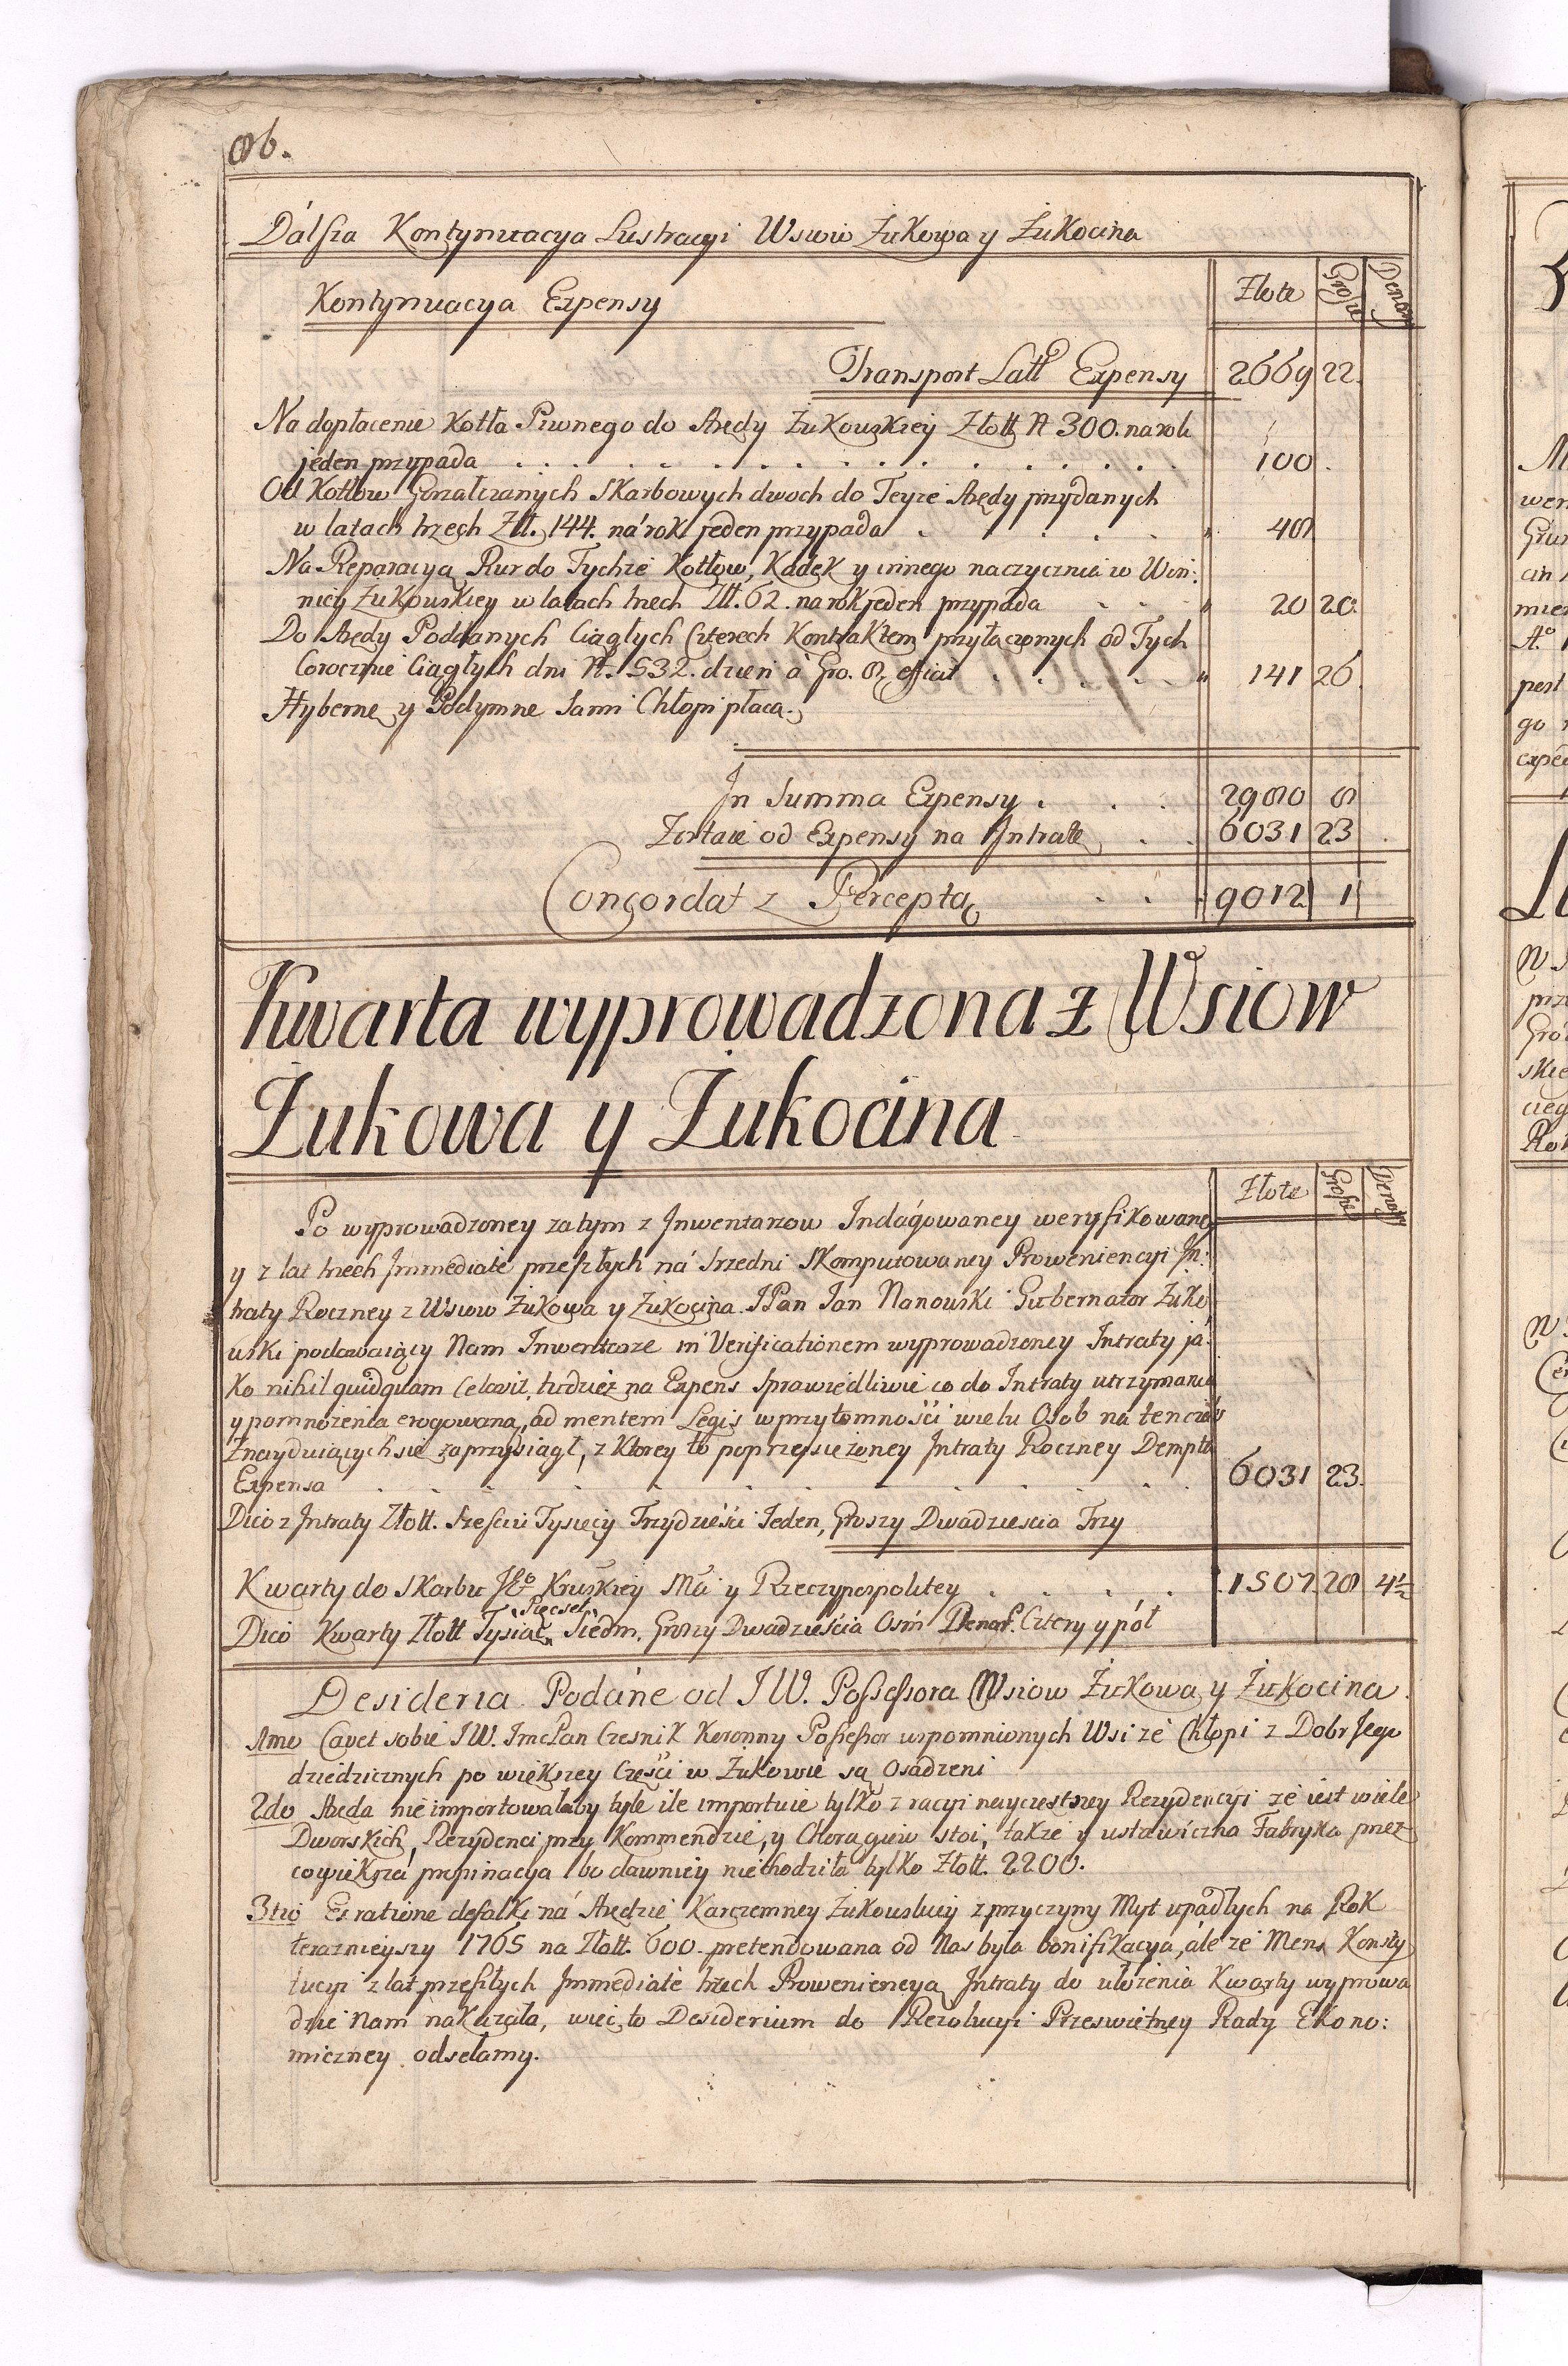 86.
Dálsza Kontynuacya Lustracyi Wsiow Żukowa y Żukocina
Kontynuacya Expensy
Złote Grosze Denar
Transport Latt Expensy 2669 22.
Na dopłacenie Kotła Piwnego do Arędy Żukowskiey Złott N 300. na rok
jeden przypada 100.
Od Kotłow Gorzałczanych Skarbowych dwoch do Teyże Arędy przydanych
w latach trzech Złt. 144. ná rok jeden przypada 48
Na Reparacyą Rur do Tychże Kotłow, Kadek y innego naczynia w Win:
nicy Żukowskiey w latach trzech Złł. 62. na rok jeden przypada 20 20.
Do Arędy Poddanych Ciągłych Czterech Kontraktem przyłączonych od Tych
Corocznie Ciągłych dni N. 532. dzień á Gro. 8. efficit 141 26.
Hybernę y Podymne Sami Chłopi płacą.
In Summa Expensy 2980 8
Zostaie od Expensy na Intratę 6031 23
Concordat z Perceptą 9012 1
Kwarta wyprowadzona z Wsiow
Żukowa y Żukocina
Złote Grosze Denar
Po wyprowadzoney zatym z Inwentarzow Indágowaney weryfikowaney
y z lat trzech Immediatè przeszłych ná Srzedni Skomputowaney Proweniencyi In:
traty Roczney z Wsiow Żukowa y Żukocina JPan Jan Nanowski Gubernator Żuko
wski podawaiący Nam Inwentarze in Verificationem wyprowadzoney Intraty já:
ko nihil quidquam Celavit, tudzież na Expens Sprawiedliwie co do Intraty utrzymania
y pomnożenia erogowaną, ad mentem Legis w przytomności wielu Osob na tenczas
Znayduiących się zaprzysiągł, z Ktorey to poprzysiężoney Intraty Roczney Dempta
Expensa 6031 23.
Dico z Intraty Złott. Sześć Tysięcy Trzydzieści Jeden, Groszy Dwadzieścia Trzy
Kwarty do Skarbu JKo Kruskiey Mći y Rzeczypospolitey 1507 28 4½
Pięcset
Dico Kwarty Złott Tysiąc Siedm, Groszy Dwadzieścia Osm Denar. Cztery y puł
Desideria Podáne od J W. Possessora Wsiow Żukowa y Żukocina
1mo Cavet sobie J W. ImcPan Czesnik Koronny Possessor wspomnionych Wsi że Chłopi z Dobr Jego
dziedzicznych po większey Części w Żukowie są Osadzeni
2do Aręda nie importowałaby tyle ile importuie tylko z racyi nayczęstszey Rezydencyi że iest wiele
Dworskich, Rezydenci przy Kommendzie, y Chorągiew stoi, także y ustawiczna Fabryka przez
co większa propinacya bo dawniey nie chodziła tylko Złott. 2200.
3tio Ex ratione defalki ná Arędzie Karczemney Żukowskiey z przyczyny Myt upádłych na Rok
teraznieyszy 1765 na Złott. 600. pretendowana od Nas była bonifikacya, ále że Mens Konsty
tucyi z lat przeszłych Immediatè trzech Prowenieńcyą Intraty do ułożenia Kwarty wyprowa
dzić Nam nakazáła, więc to Desiderium do Rezolucyi Przeswietney Rady Ekono:
miczney odsełamy.